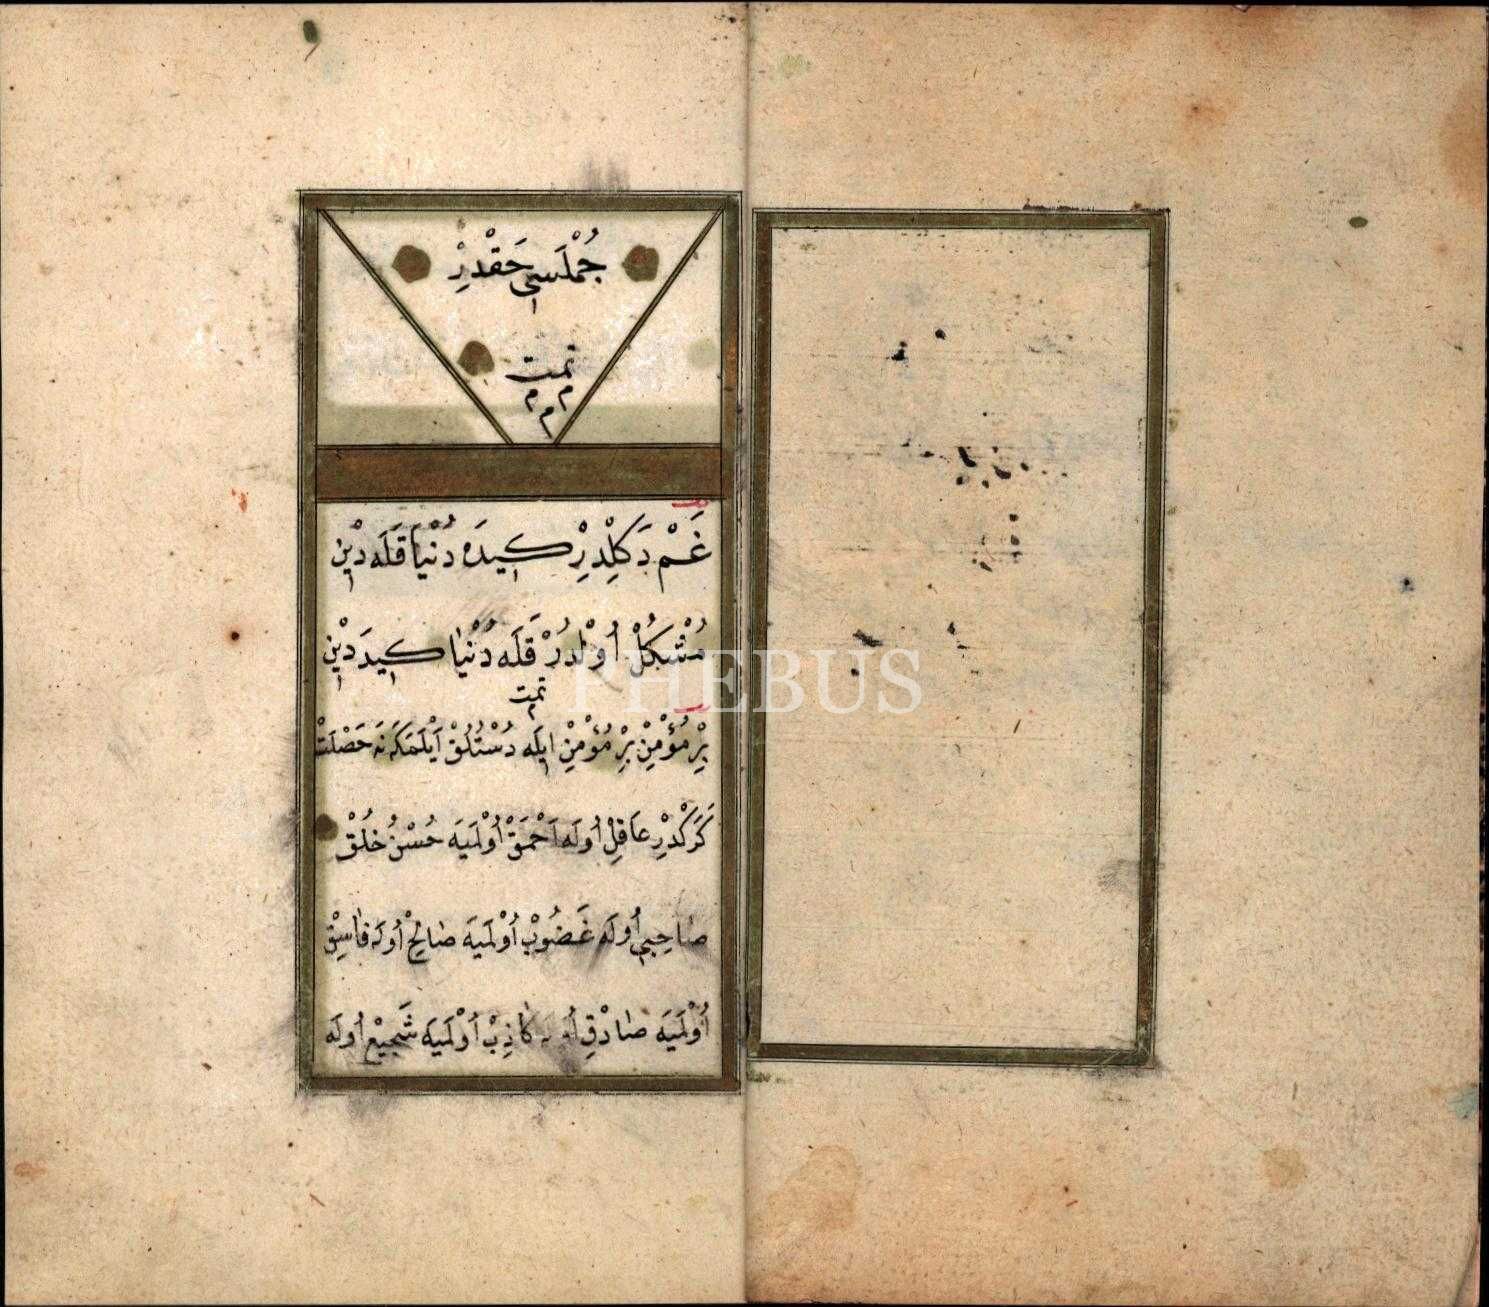 جُمْلَسِى حَقْدِرْ
تمت
م م م
غَمْ دَكِلْدِرْ كِيدَه دُنْيَا قَلَه دِيْن
مُشْكُلْ اُوْلْدُرْ قَلَه دُنْيَا كِيدَ دِيْن
تمت
بِرْ مُؤْمِنْ بِرْ مُؤْمِنْ اِيلَه دُسْتُلُقْ اَيْلَمَكَه نَه خَصْلَتْ
كَرَكْدِرْ عَاقِلْ اُولَه اَحْمَقْ اُوْلْمَيَه حُسْنُ خُلُقْ
صَاحِبِى اُولَه غَضُوبْ اُوْلْمَيَه صَالِحْ اُولَه فَاسِقْ
اُوْلْمَيَه صَادِقْ كَاذِبْ اُوْلْمَيَه شَجِيعْ اُولَه
PHEBUS